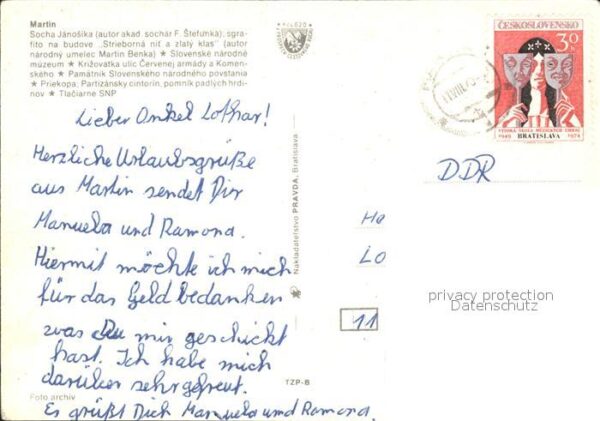 Martin
Socha Jánošíka (autor akad. sochár F. Štefunka), sgra-
fito na budove „Strieborná niť a zlatý klas" (autor
národný umelec Martin Benka) ★ Slovenské národné
múzeum ★ Križovatka ulíc Červenej armády a Komen-
ského ★ Pamätník Slovenského národného povstania
★ Priekopa, Partizánsky cintorín, pomník padlých hrdi-
nov ★ Tlačiarne SNP
Lieber Onkel Lothar!
Herzliche Urlaubsgrüße
aus Martin sendet Dir
Manuela und Ramona.
Hiermit möchte ich mich
für das Geld bedanken
was Du mir geschickt
hast. Ich habe mich
darüber sehr gefreut.
Es grüßt Dich Manuela und Ramona.
Foto archív
TZP-B
Nakladateľstvo PRAVDA, Bratislava
ČESKOSLOVENSKO
30
h
VYSOKÁ ŠKOLA MÚZICKÝCH UMENÍ
1949 BRATISLAVA 1974
DDR
Ha
Lo
11
privacy protection
Datenschutz